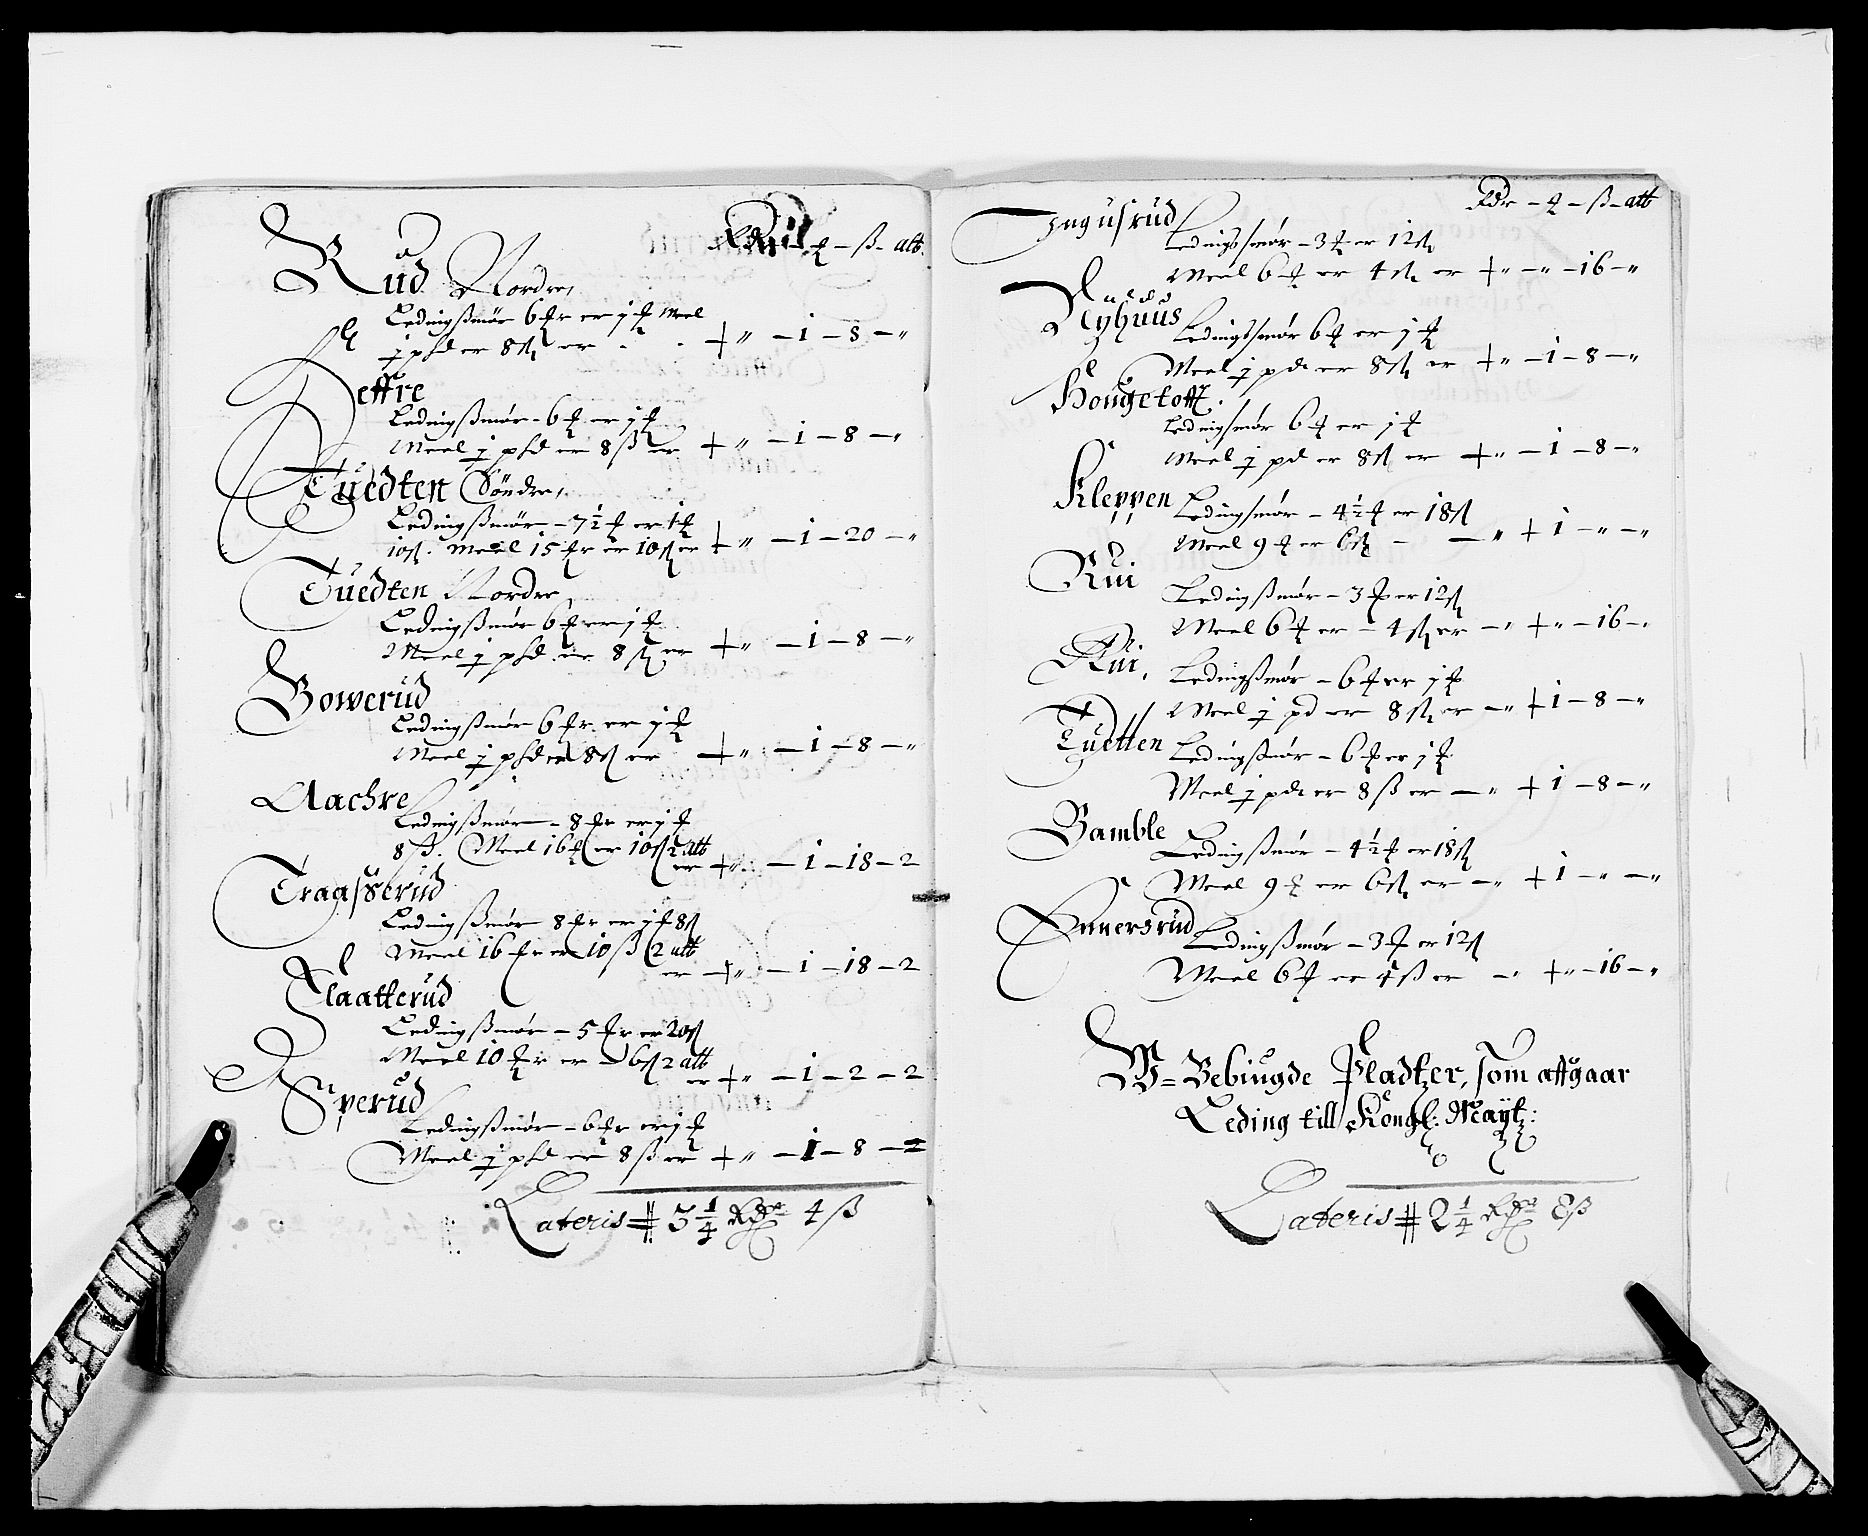 Rdr - ƶ - ß - alb
Rud Nordre,
Ledingßmør 6 ƶr er j ƶ Meel
j pfd er 8 ß er - - + „ - 1 - 8 - „
Deffre
Ledingßmør - 6 ƶ er j ƶ
Meel j pfd er 8 ß er + „ - 1 - 8 - „
Tuedten Söndre,
Ledingßmør - 7½ ƶ er 1 ƶ
10 ß. Meel 15 ƶr er 10 ß er + „ - 1 - 20 - „
Tuedten Nordre
Ledingßmør 6 ƶ er j ƶ
Meel j pfd er 8 ß er + „ - 1 - 8 - „
Bowerud
Ledingßmør 6 ƶr er j ƶ
Meel j pfd er 8 ß er + „ - 1 - 8 - „
Aachre
Ledingßmør - 8 ƶr er j ƶ
8 ß. Meel 16 ƶ er 10 ß 2 alb
er + „ - 1 - 18 - 2
Tragsserud
Ledingßmør 8 ƶr er j ƶ 8 ß
Meel 16 ƶr er 10 ß 2 alb
er + „ - 1 - 18 - 2
Flaatterud
Ledingßmør - 5 ƶr er 20 ß
Meel 10 ƶr er - 6 ß 2 alb
er + „ - 1 - 2 - 2
Sperud
Ledingßmør - 6 ƶr er j ƶ
Meel j pfd er 8 ß er + „ - 1 - 8 -
Lateris # 3 1/4 Rdr 4 ß
Rdr - ƶ - ß - alb
Ingusrud
Ledingsmør - 3 ƶ er 12 ß
Meel 6 ƶ er 4 ß er + „ - „ - 16 - „
Nyhuus
Ledingsmør 6 ƶ er j ƶ
Meel j pd er 8 ß er + „ - 1 - 8 - „
Hougetofft.
Ledingsmør 6 ƶ er j ƶ
Meel j pd er 8 ß er + „ - 1 - 8 - „
Kleppen
Ledingsmør - 4½ ƶ er 18 ß
Meel 9 ƶ er 6 ß - - „ + 1 - „ - „
Rui
Ledingßmør - 3 ƶ er 12 ß
Meel 6 ƶ er - 4 ß er - „ + „ - 16 - „
Rui,
Ledingßmør - 6 ƶ er j ƶ
Meel j pd er 8 ß er - „ + 1 - 8 - „
Tuetten
Ledingßmør - 6 ƶ er j ƶ
Meel j pd er 8 ß er - „ + 1 - 8 - „
Bamble
Ledingßmør - 4½ ƶ er 18 ß
Meel 9 ƶ er 6 ß er - „ + 1 - „ - „
Ennersrud
Ledingßmør - 3 ƶ er 12 ß
Meel 6 ƶ er 4 ß er - „ + „ - 16 - „
W= Bebiugde Pladtzer, som affgaar
Leding till Kongl: Maytz:
Lateris # 2 1/4 Rdr 8 ß